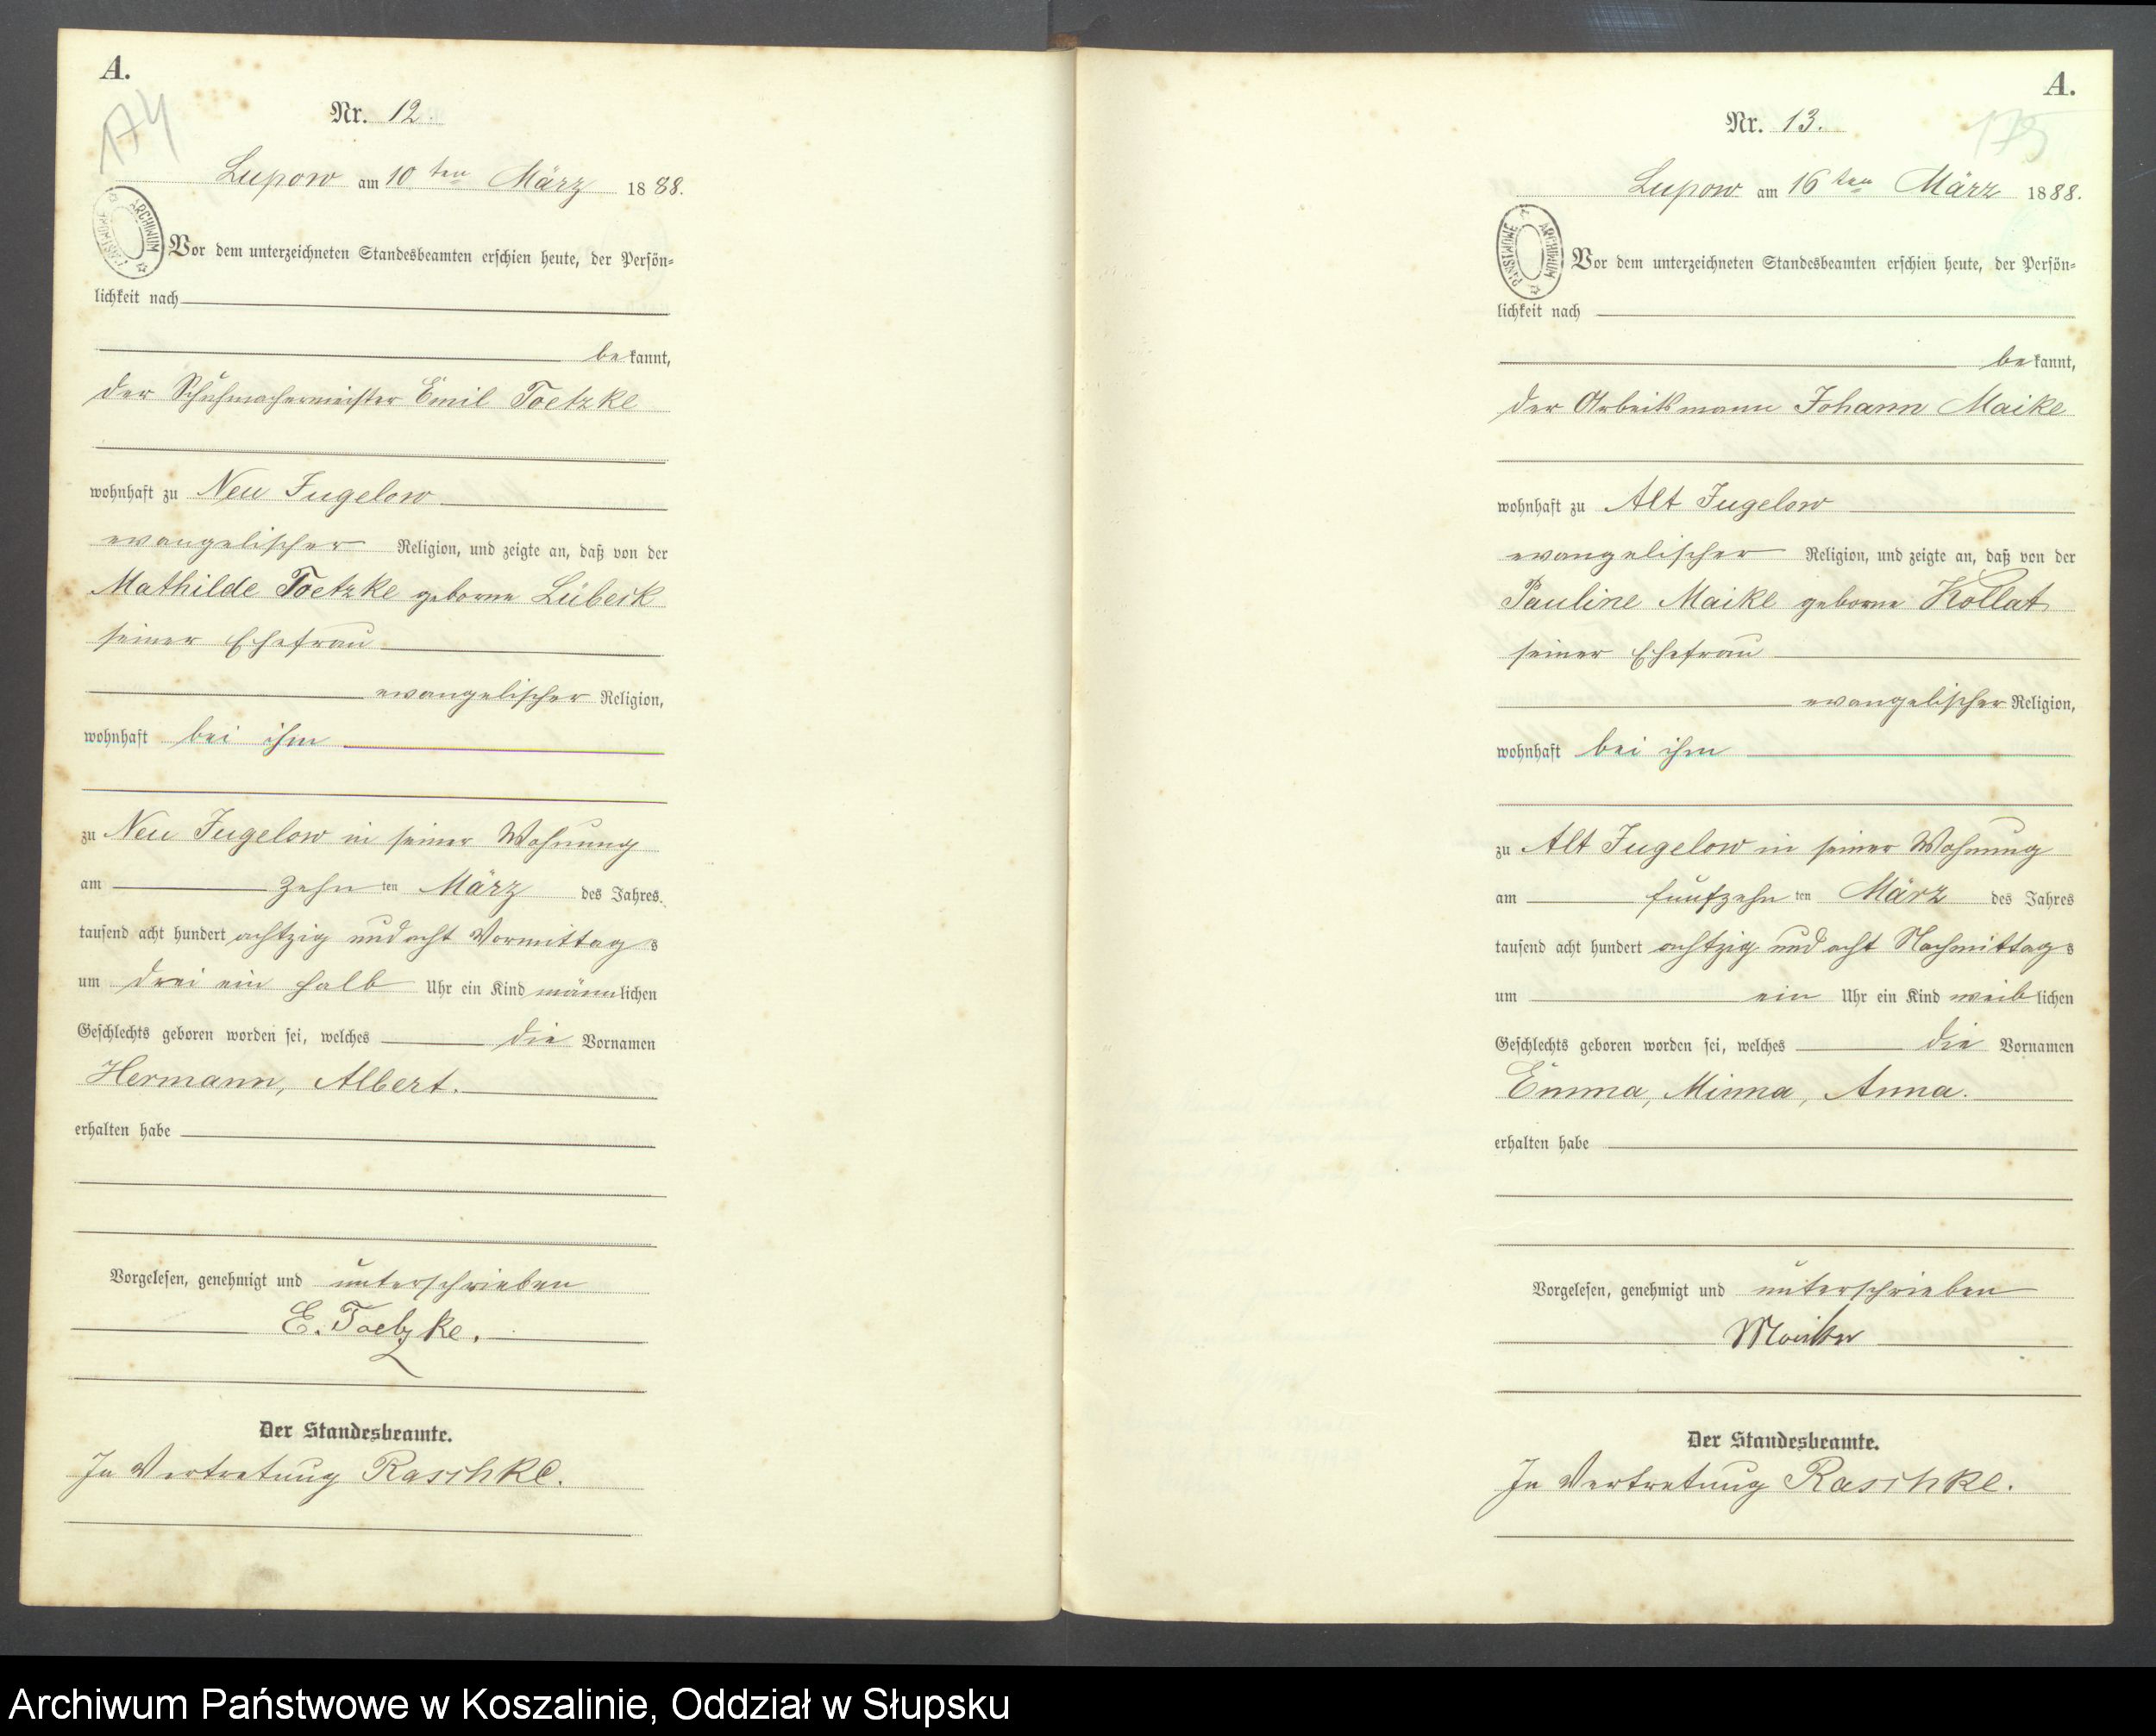 A.
174
Nr. 12.
Lupow am 10 ten März 1888.
ARCHIWUM PAŃSTWOWE
Vor dem unterzeichneten Standesbeamten erschien heute, der Persön=
lichkeit nach
bekannt,
der Schuhmachermeister Emil Toetzke
wohnhaft zu Neu Jugelow
evangelischer Religion, und zeigte an, daß von der
Mathilde Toetzke geborne Lübeck
seiner Ehefrau
evangelischer Religion,
wohnhaft bei ihm
zu Neu Jugelow in seiner Wohnung
am zehn ten März des Jahres
tausend acht hundert achtzig und acht Vormittags
um drei ein halb Uhr ein Kind männlichen
Geschlechts geboren worden sei, welches die Vornamen
Hermann, Albert.
erhalten habe
Vorgelesen, genehmigt und unterschrieben
E. Toetzke.
Der Standesbeamte.
In Vertretung Raschke.
A.
175
Nr. 13.
Lupow am 16 ten März 1888.
ARCHIWUM PAŃSTWOWE
Vor dem unterzeichneten Standesbeamten erschien heute, der Persön=
lichkeit nach
bekannt,
der Arbeitsmann Johann Maike
wohnhaft zu Alt Jugelow
evangelischer Religion, und zeigte an, daß von der
Pauline Maike geborne Kollat
seiner Ehefrau
evangelischer Religion,
wohnhaft bei ihm
zu Alt Jugelow in seiner Wohnung
am fünfzehn ten März des Jahres
tausend acht hundert achtzig und acht Nachmittags
um ein Uhr ein Kind weiblichen
Geschlechts geboren worden sei, welches die Vornamen
Emma, Minna, Anna.
erhalten habe
Vorgelesen, genehmigt und unterschrieben
Der Standesbeamte.
In Vertretung Raschke.
Archiwum Państwowe w Koszalinie, Oddział w Słupsku